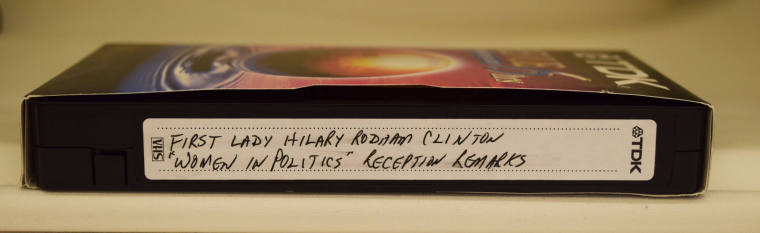 TDK
VHS
FIRST LADY HILARY RODHAM CLINTON
"WOMEN IN POLITICS" RECEPTION REMARKS
TDK